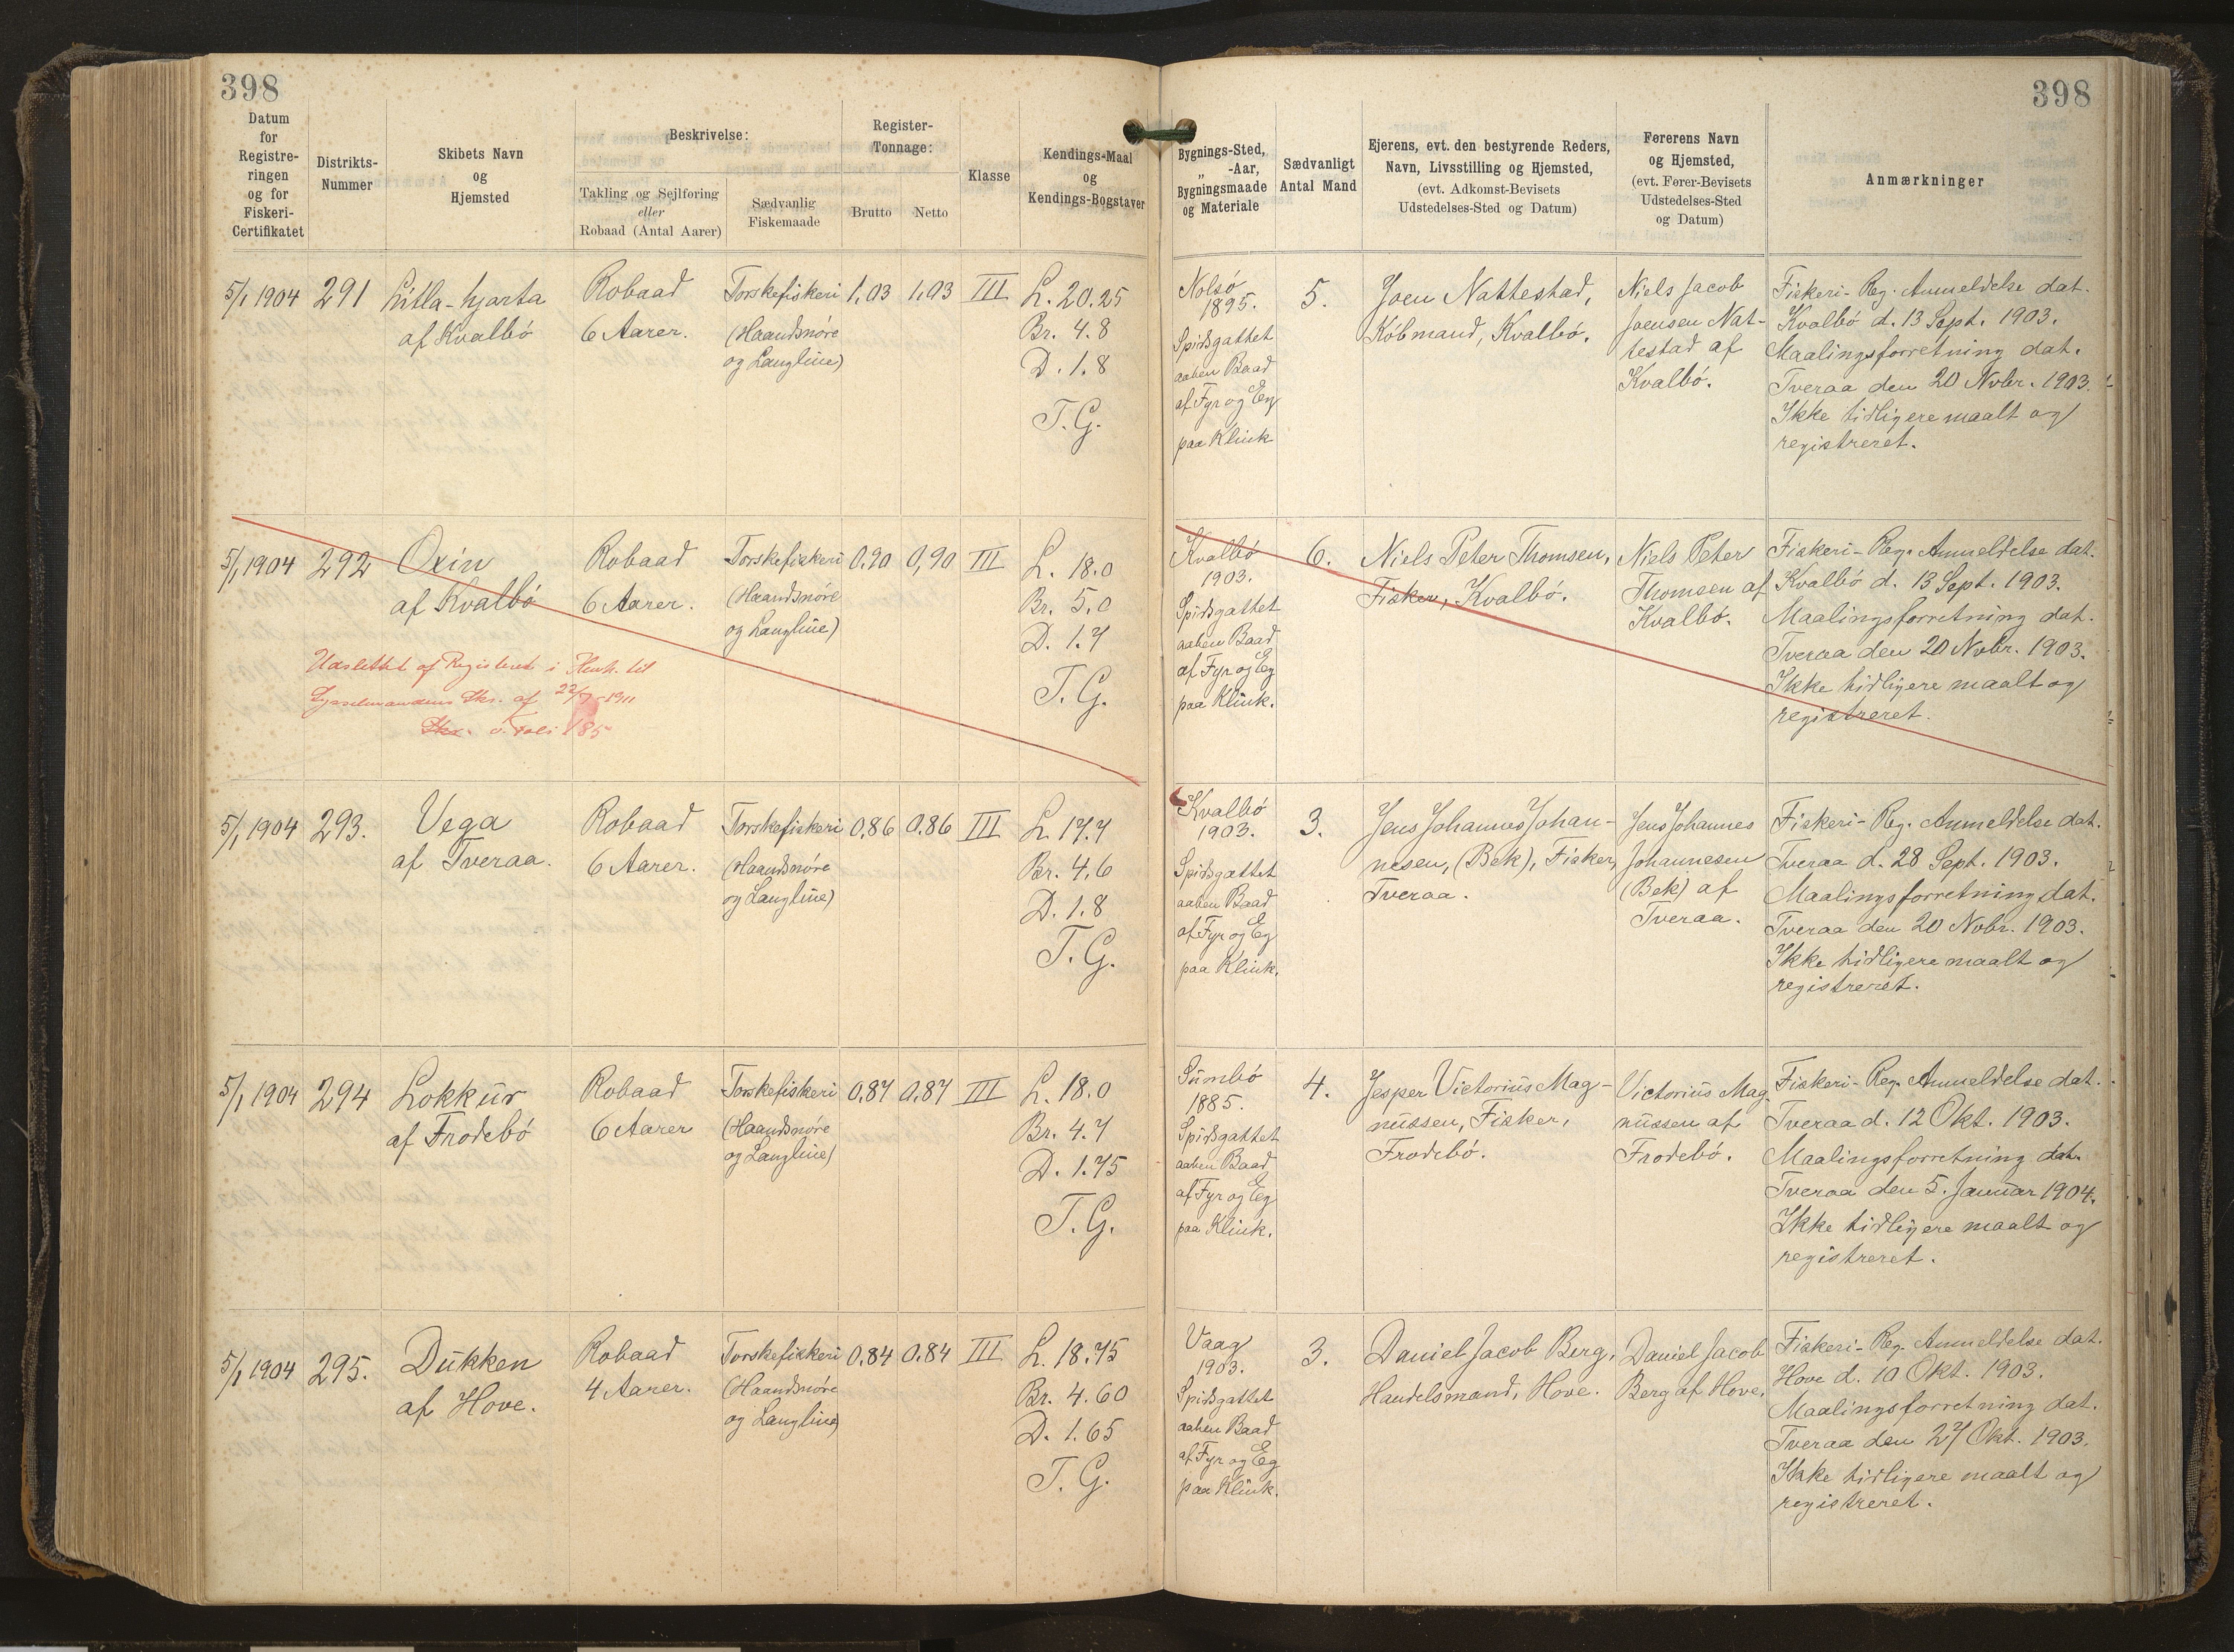 398
398
Datum
for
Registre-
ringen
og for
Fiskeri-
Certifikatet
Distrikts-
Nummer
Skibets Navn
og
Hjemsted
Beskrivelse:
Takling og Sejlføring
eller
Robaad (Antal Aarer)
Sædvanlig
Fiskemaade
Register-
Tonnage:
Brutto
Netto
Klasse
Kendings-Maal
og
Kendings-Bogstaver
Bygnings-Sted,
„ -Aar,
Bygningsmaade
og Materiale
Sædvanligt
Antal Mand
Ejerens, evt. den bestyrende Reders,
Navn, Livsstilling og Hjemsted,
(evt. Adkomst-Bevisets
Udstedelses-Sted og Datum)
Førerens Navn
og Hjemsted,
(evt. Fører-Bevisets
Udstedelses-Sted
og Datum)
Anmærkninger
5/1 1904
291
Litla-hjarta
af Kvalbö
Robaad
6 Aarer.
Torskefiskeri
(Haandsnöre
og Langline)
1,03
1,03
III
L. 20.25
Br. 4.8
D. 1.8
T. G.
Nolsö
1895.
Spidsgattet
aaben Baad
af Fyr og Eg
paa Klink
5.
Joen Nattestad,
Köbmand, Kvalbö.
Niels Jacob
Joensen Nat-
testad af
Kvalbö.
Fiskeri-Reg. Anmeldelse dat.
Kvalbö d. 13 Sept. 1903.
Maalingsforretning dat.
Tveraa den 20 Nvbr. 1903.
Ikke tidligere maalt og
registreret.
5/1 1904
292
Oxin
af Kvalbö
Robaad
6 Aarer.
Torskefiskeri
(Haandsnöre
og Langline)
0,90
0,90
III
L. 18.0
Br. 5.0
D. 1.7
T. G.
Udslettet af Registeret i Henh. til
Sysselmandens Skr. af 22/7-1911
Skr. i Foli 185
Kvalbö
1903.
Spidsgattet
aaben Baad
af Fyr og Eg
paa Klink.
6.
Niels Peter Thomsen,
Fisker, Kvalbö.
Niels Peter
Thomsen af
Kvalbö.
Fiskeri-Reg. Anmeldelse dat.
Kvalbö d. 13 Sept. 1903.
Maalingsforretning dat.
Tveraa den 20 Nvbr. 1903.
Ikke tidligere maalt og
registreret.
5/1 1904
293.
Vega
af Tveraa.
Robaad
6 Aarer.
Torskefiskeri
(Haandsnöre
og Langline)
0,86
0,86
III
L. 17.7
Br. 4,6
D. 1.8
T. G.
Kvalbö
1903.
Spidsgattet
aaben Baad
af Fyr og Eg
paa Klink.
3.
Jens Johannes Johan-
nesen, (Bek), Fisker,
Tveraa.
Jens Johannes
Johannesen
(Bek) af
Tveraa.
Fiskeri-Reg. Anmeldelse dat.
Tveraa d. 28 Sept. 1903.
Maalingsforretning dat.
Tveraa den 20 Nvbr. 1903.
Ikke tidligere maalt og
registreret.
5/1 1904
294
Lokkur
af Frodebö
Robaad
6 Aarer
Torskefiskeri
(Haandsnöre
og Langline)
0,87
0,87
III
L. 18.0
Br. 4.7
D. 1.75
T. G.
Sumbö
1885.
Spidsgattet
aaben Baad
af Fyr og Eg
paa Klink.
4.
Jesper Victorius Mag-
nussen, Fisker,
Frodebö.
Victorius Mag
nussen af
Frodebö.
Fiskeri-Reg. Anmeldelse dat.
Tveraa d. 12 Okt. 1903.
Maalingsforretning dat.
Tveraa den 5. Januar 1904.
Ikke tidligere maalt og
registreret.
5/1 1904
295.
Dukken
af Hove.
Robaad
4 Aarer.
Torskefiskeri
(Haandsnöre
og Langline)
0,84
0,84
III
L. 18.75
Br. 4.60
D. 1.65
T. G.
Vaag
1903.
Spidsgattet
aaben Baad
af Fyr og Eg
paa Klink.
3.
Daniel Jacob Berg,
Handelsmand, Hove.
Daniel Jacob
Berg af Hove,
Fiskeri-Reg. Anmeldelse dat.
Hove d. 10 Okt. 1903.
Maalingsforretning dat.
Tveraa den 27 Okt. 1903.
Ikke tidligere maalt og
registreret.